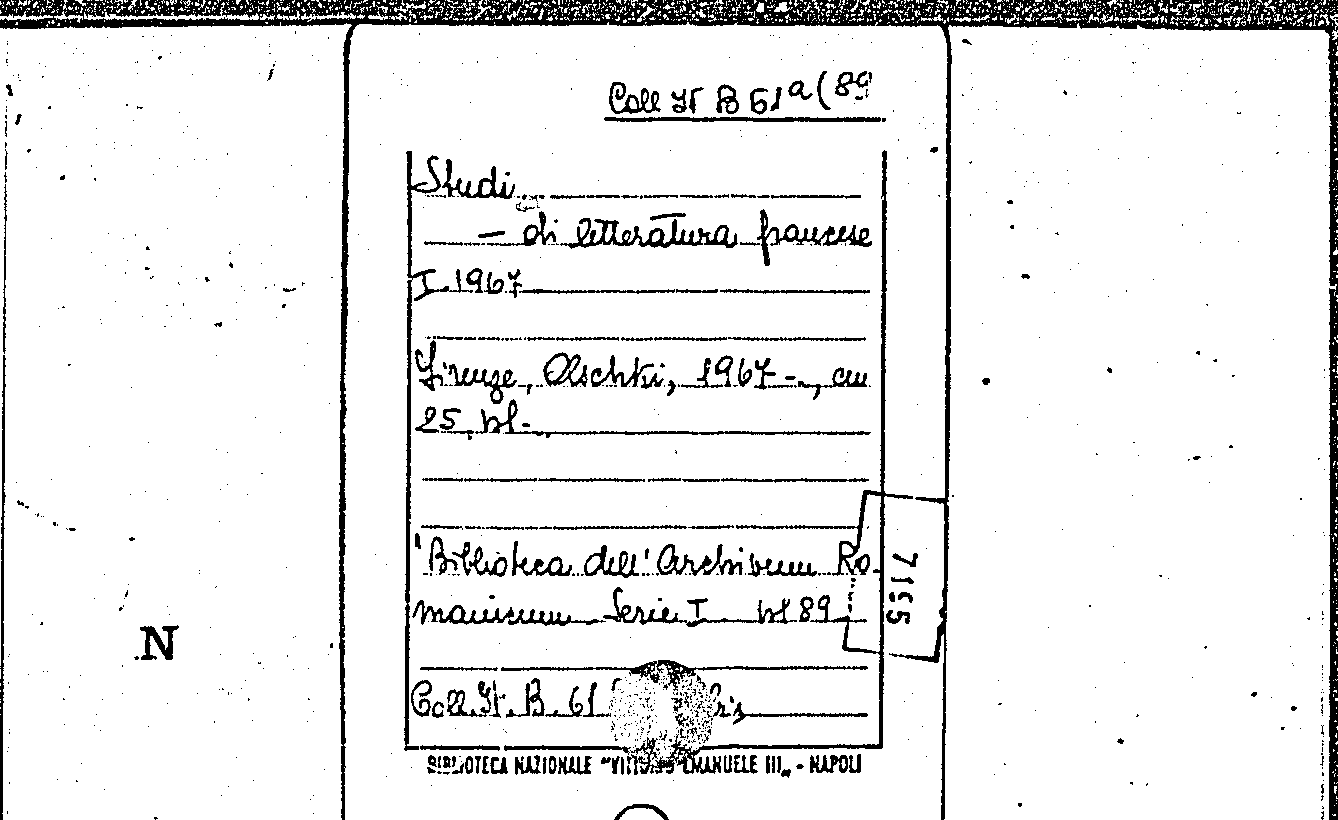 Coll It B 61 a (89
Studi
– di letteratura francese
I. 1967
Firenze, Olschki, 1967 -, cm
25, vl.
"Biblioteca dell'Archivum Ro-
manicum Serie I vl 89
7195
N
Coll. It. B. 61
BIBLIOTECA NAZIONALE "VITTORIO EMANUELE III„ - NAPOLI